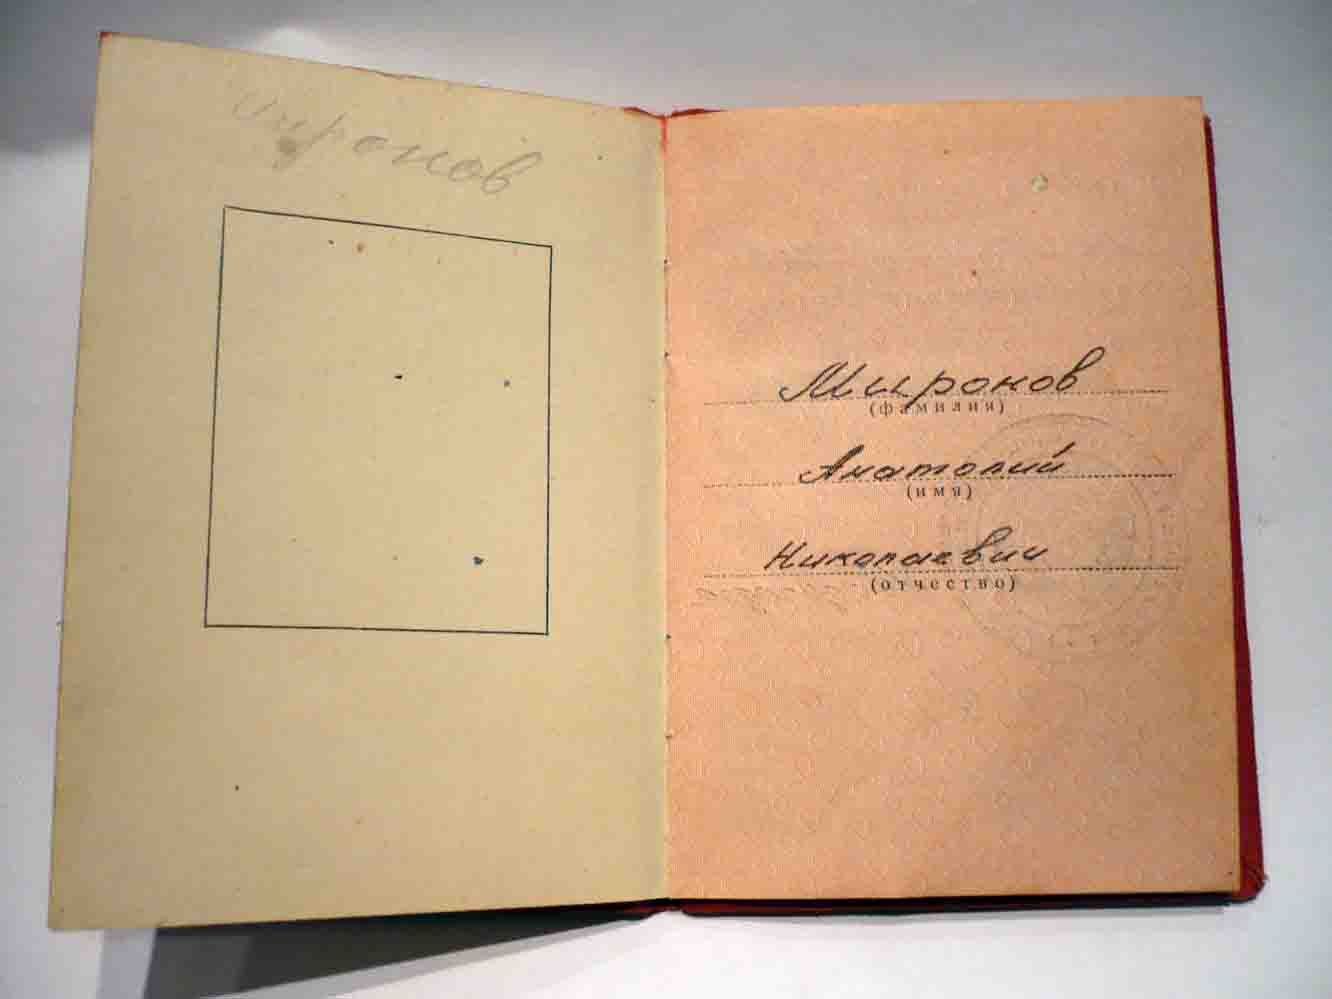 Миронов
Миронов
(фамилия)
Анатолий
(имя)
Николаевич
(отчество)